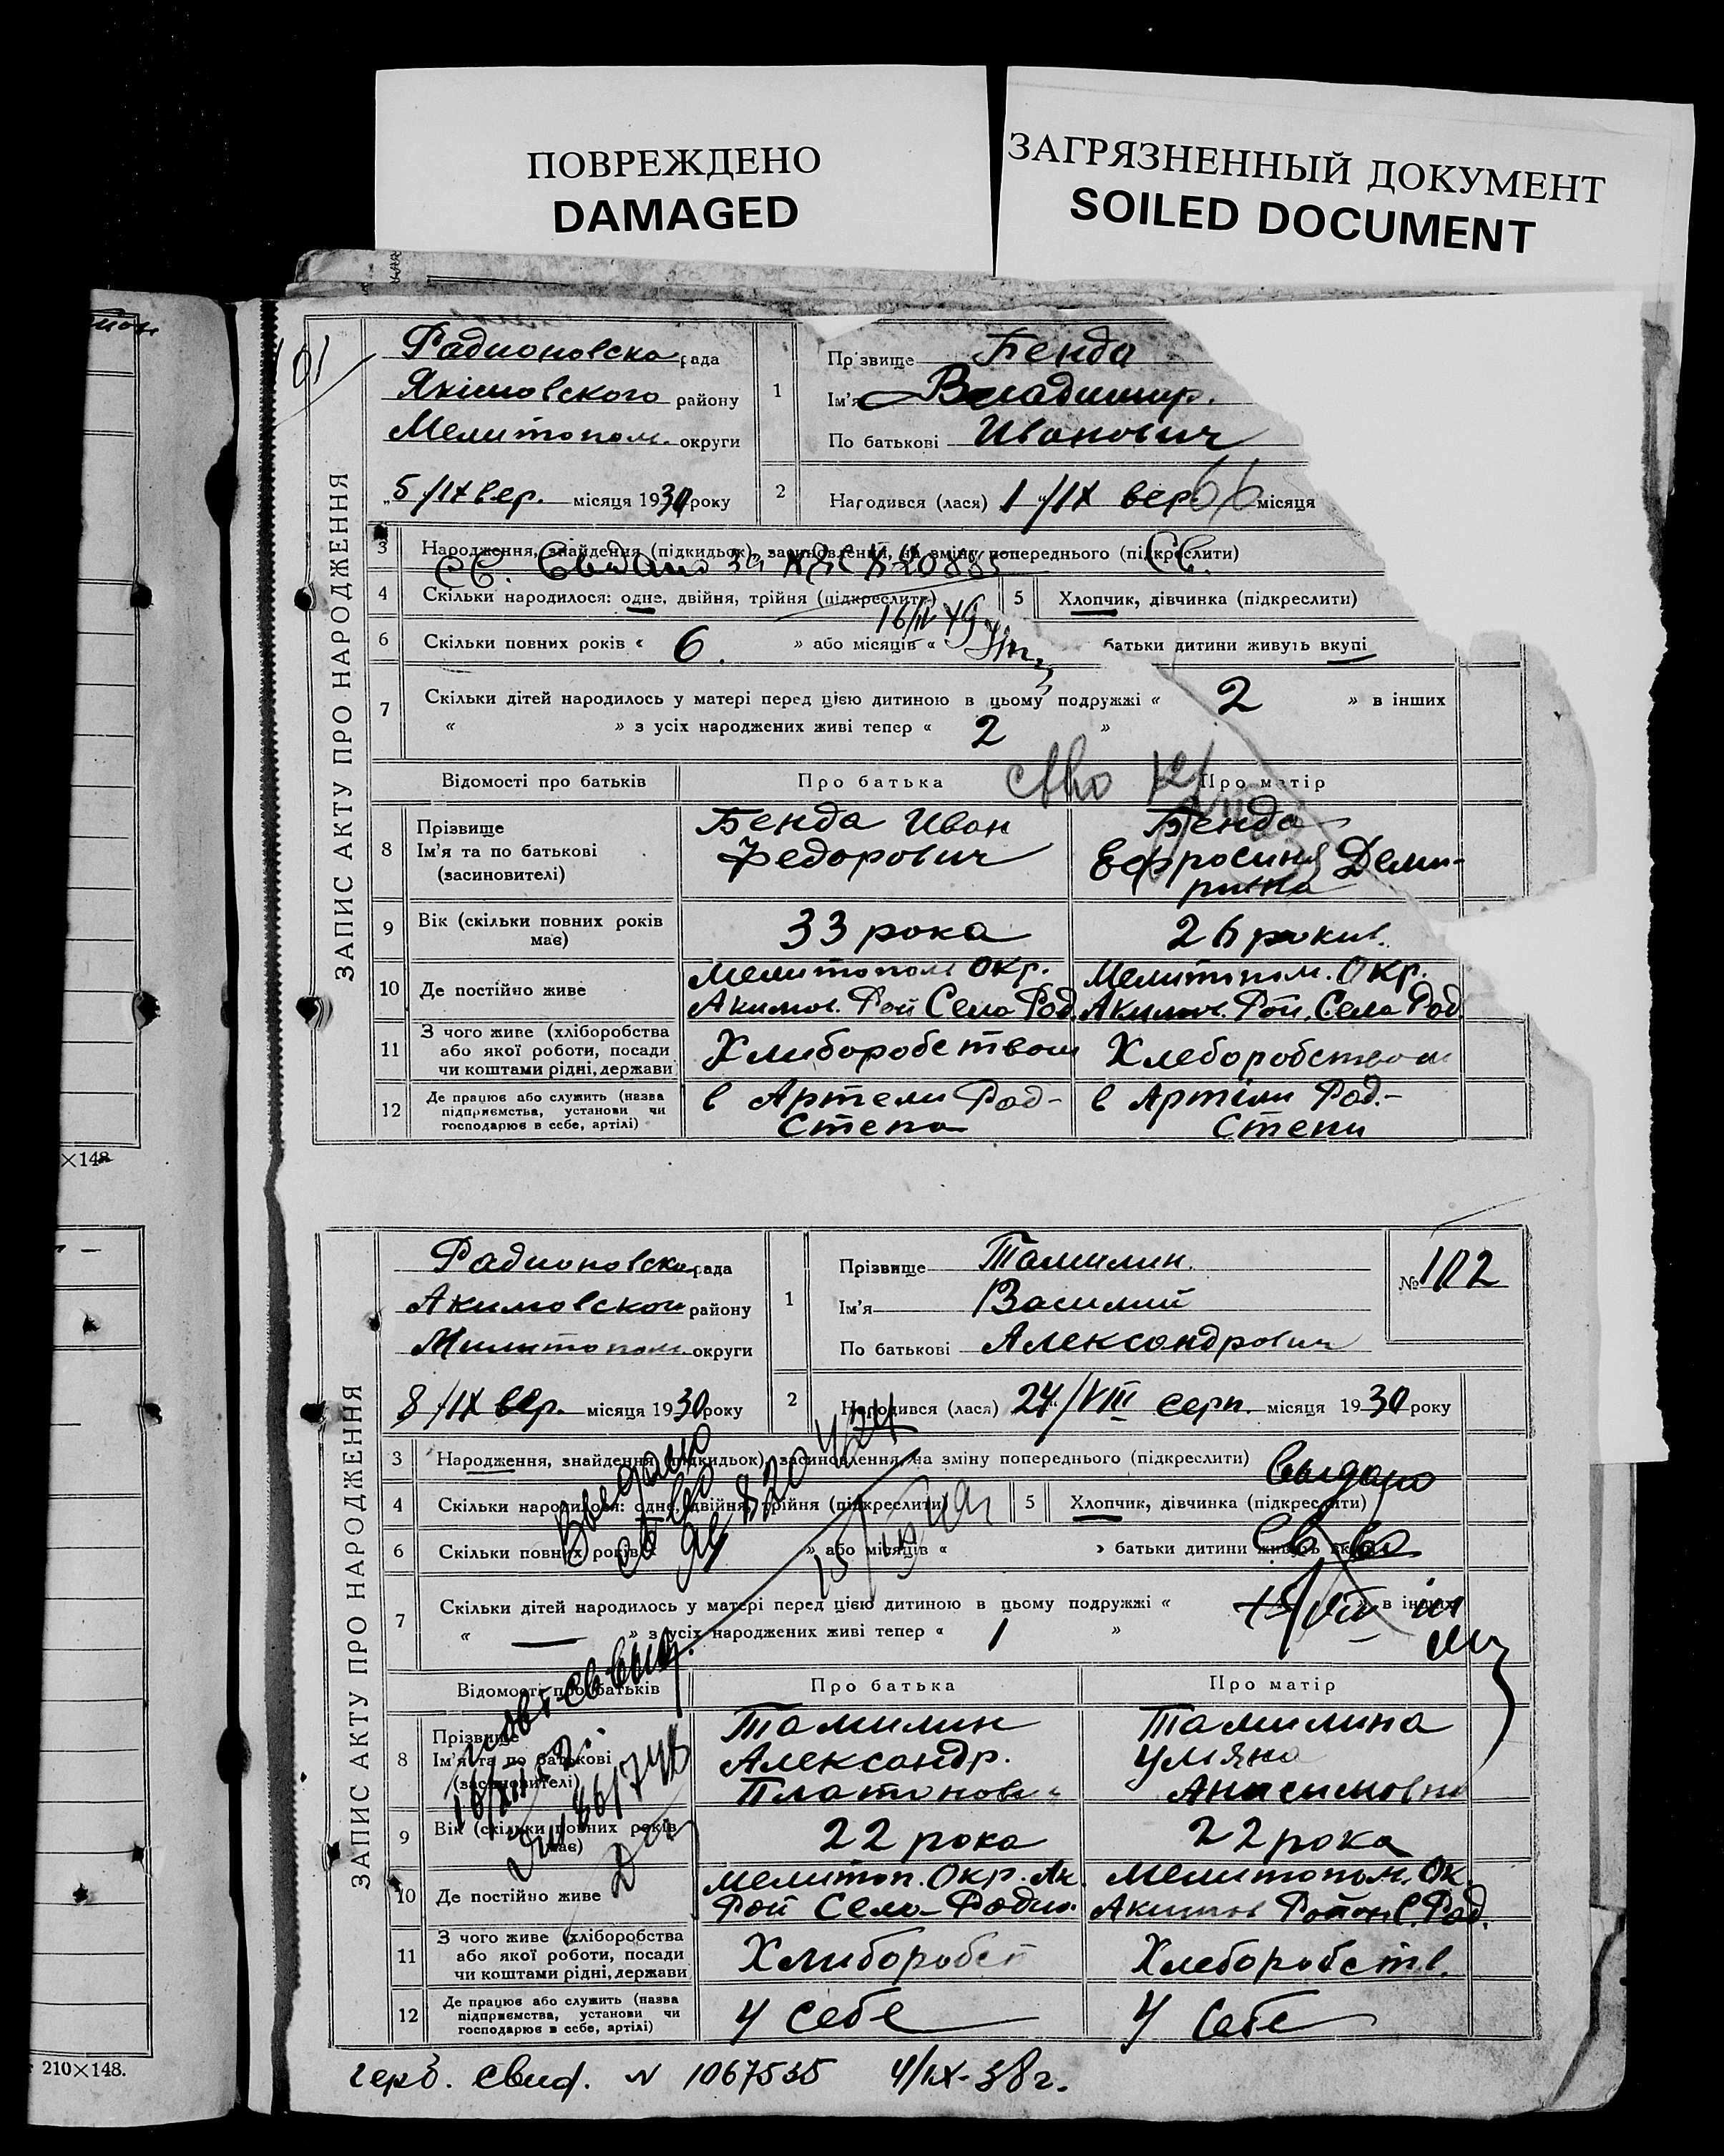 ПОВРЕЖДЕНО
DAMAGED
ЗАГРЯЗНЕННЫЙ ДОКУМЕНТ
SOILED DOCUMENT
101
ЗАПИС АКТУ ПРО НАРОДЖЕННЯ
Радионовска рада
Якімовского району
Мелитопол. округи
„5/IX вер. місяця 1930 року
1
Прізвище Бенда
Ім'я Владимир.
По батькові Иванович
2
Народився (лася) 1/IX вер. місяця
3 Народження, знайдення (підкидьок), засиновлення, на зміну попереднього (підкреслити)
4 Скільки народилося: одне, двійня, трійня (підкреслити)
5 Хлопчик, дівчинка (підкреслити)
6 Скільки повних років « 6. » або місяців « батьки дитини живуть вкупі
7 Скільки дітей народилось у матері перед цією дитиною в цьому подружжі « 2 » в інших
« » з усіх народжених живі тепер « 2 »
Відомості про батьків Про батька Про матір
8 Прізвище
Ім'я та по батькові
(засиновителі)
Бенда Иван
Федорович
Бенда
Ефросиня
9 Вік (скільки повних років
має)
33 рока
26 рокив.
10 Де постійно живе
Мелитопол Окр.
Акимов. Рой Село Род.
Мелитопол. Окр.
Акимов. Рой. Село Род
11 З чого живе (хліборобства
або якої роботи, посади
чи коштами рідні, держави
Хлиборобством
Хлеборобством
12 Де працює або служить (назва
підприємства, установи чи
господарює в себе, артілі)
в Артели Род-
Степа
в Артіли Род.-
Степи
ЗАПИС АКТУ ПРО НАРОДЖЕННЯ
Радионовска рада
Акимовской району
Милитопол. округи
8/IX вер. місяця 1930 року
1
Прізвище Тамилин.
Ім'я Василий
По батькові Александрович
№ 102
2
Народився (лася) 24/VIII серп. місяця 1930 року
3 Народження, знайдення (підкидьок), засиновлення, на зміну попереднього (підкреслити)
Выдано
4 Скільки народилося: одне, двійня, трійня (підкреслити)
5 Хлопчик, дівчинка (підкреслити)
6 Скільки повних років « » або місяців « » батьки дитини живуть вкупі
Св-во
7 Скільки дітей народилось у матері перед цією дитиною в цьому подружжі « » в інших
« — » з усіх народжених живі тепер « 1 »
Відомості про батьків Про батька Про матір
8 Прізвище
Ім'я та по батькові
(засиновителі)
Тамилин
Александр.
Платонов
Тамилина
Уляна
Анисимовна
9 Вік (скільки повних років
має)
22 рока
22 рока
10 Де постійно живе
Мелитоп. Окр. Ак.
Рой Село Родио.
Мелитопол. Ок
Акимов Район С. Род.
11 З чого живе (хліборобства
або якої роботи, посади
чи коштами рідні, держави
Хлиборобст
Хлеборобств.
12 Де працює або служить (назва
підприємства, установи чи
господарює в себе, артілі)
У себе
У себе
герб. свид. N 1067535 4/IX-38 г.
×148
210×148.